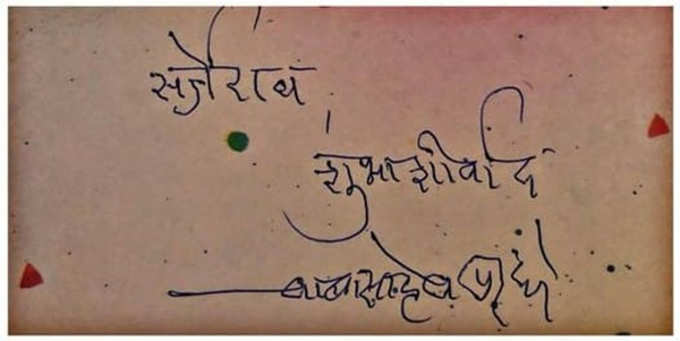 सर्जेराव
शुभाशीर्वाद
बाबासाहेब पुरंदरे